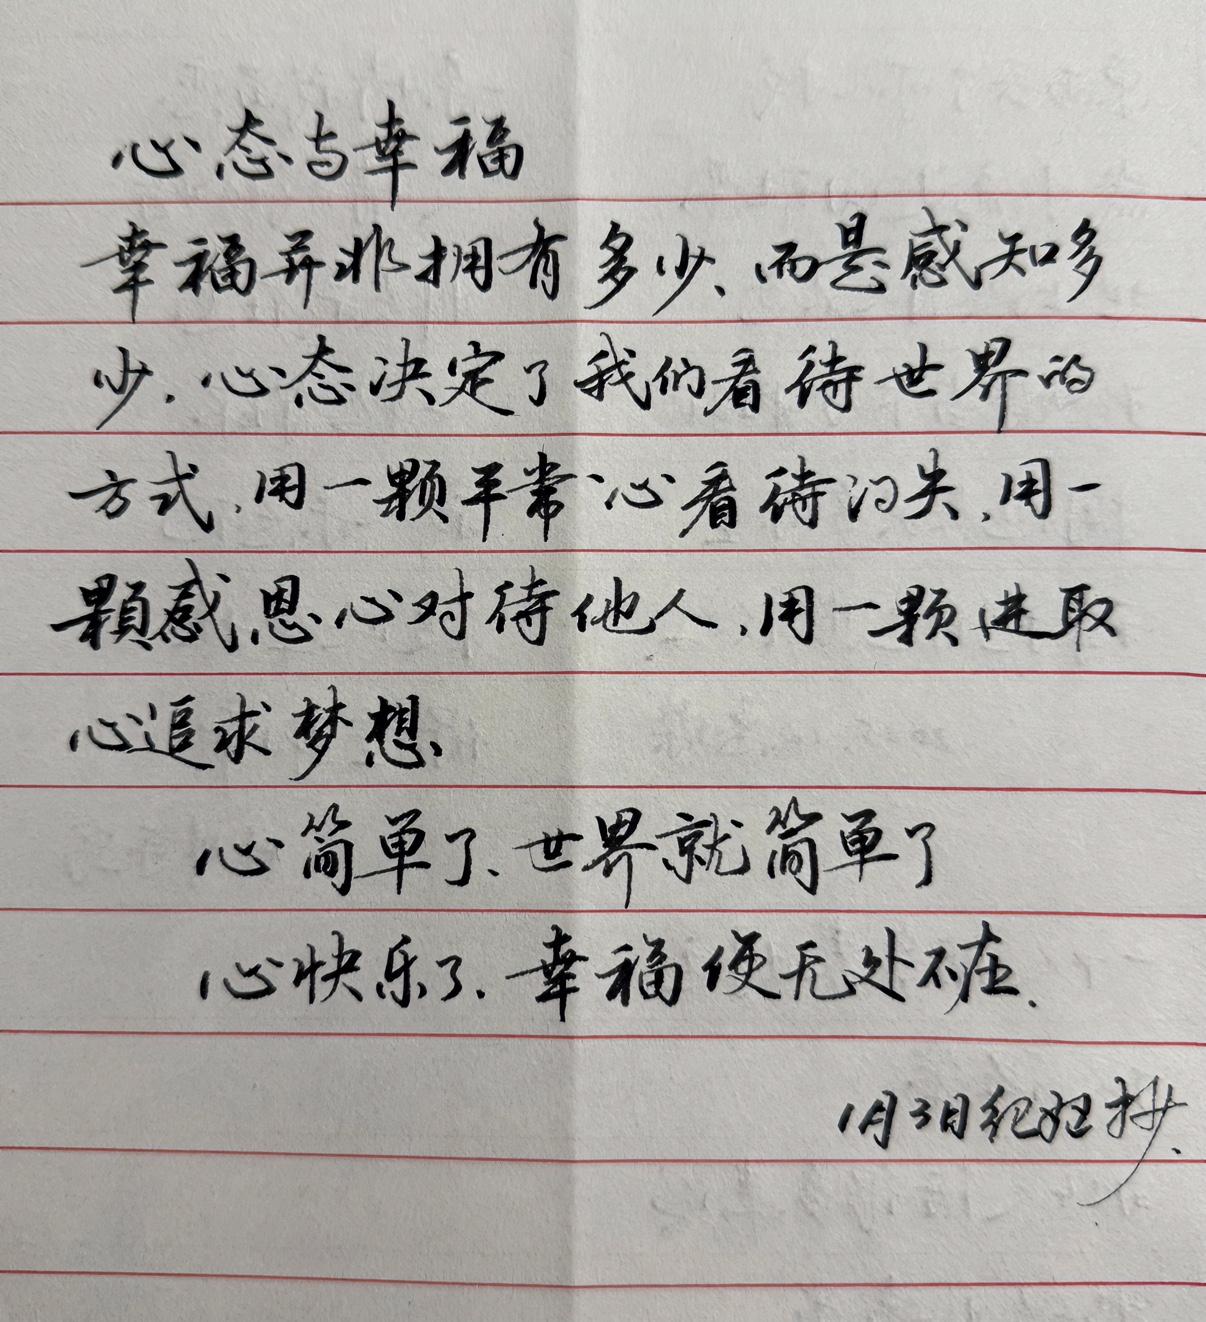 心态与幸福
幸福并非拥有多少、而是感知多
少.心态决定了我们看待世界的
方式,用一颗平常心看待得失,用一
颗感恩心对待他人,用一颗进取
心追求梦想.
心简单了、世界就简单了
心快乐了.幸福便无处不在.
1月3日纪 抄.